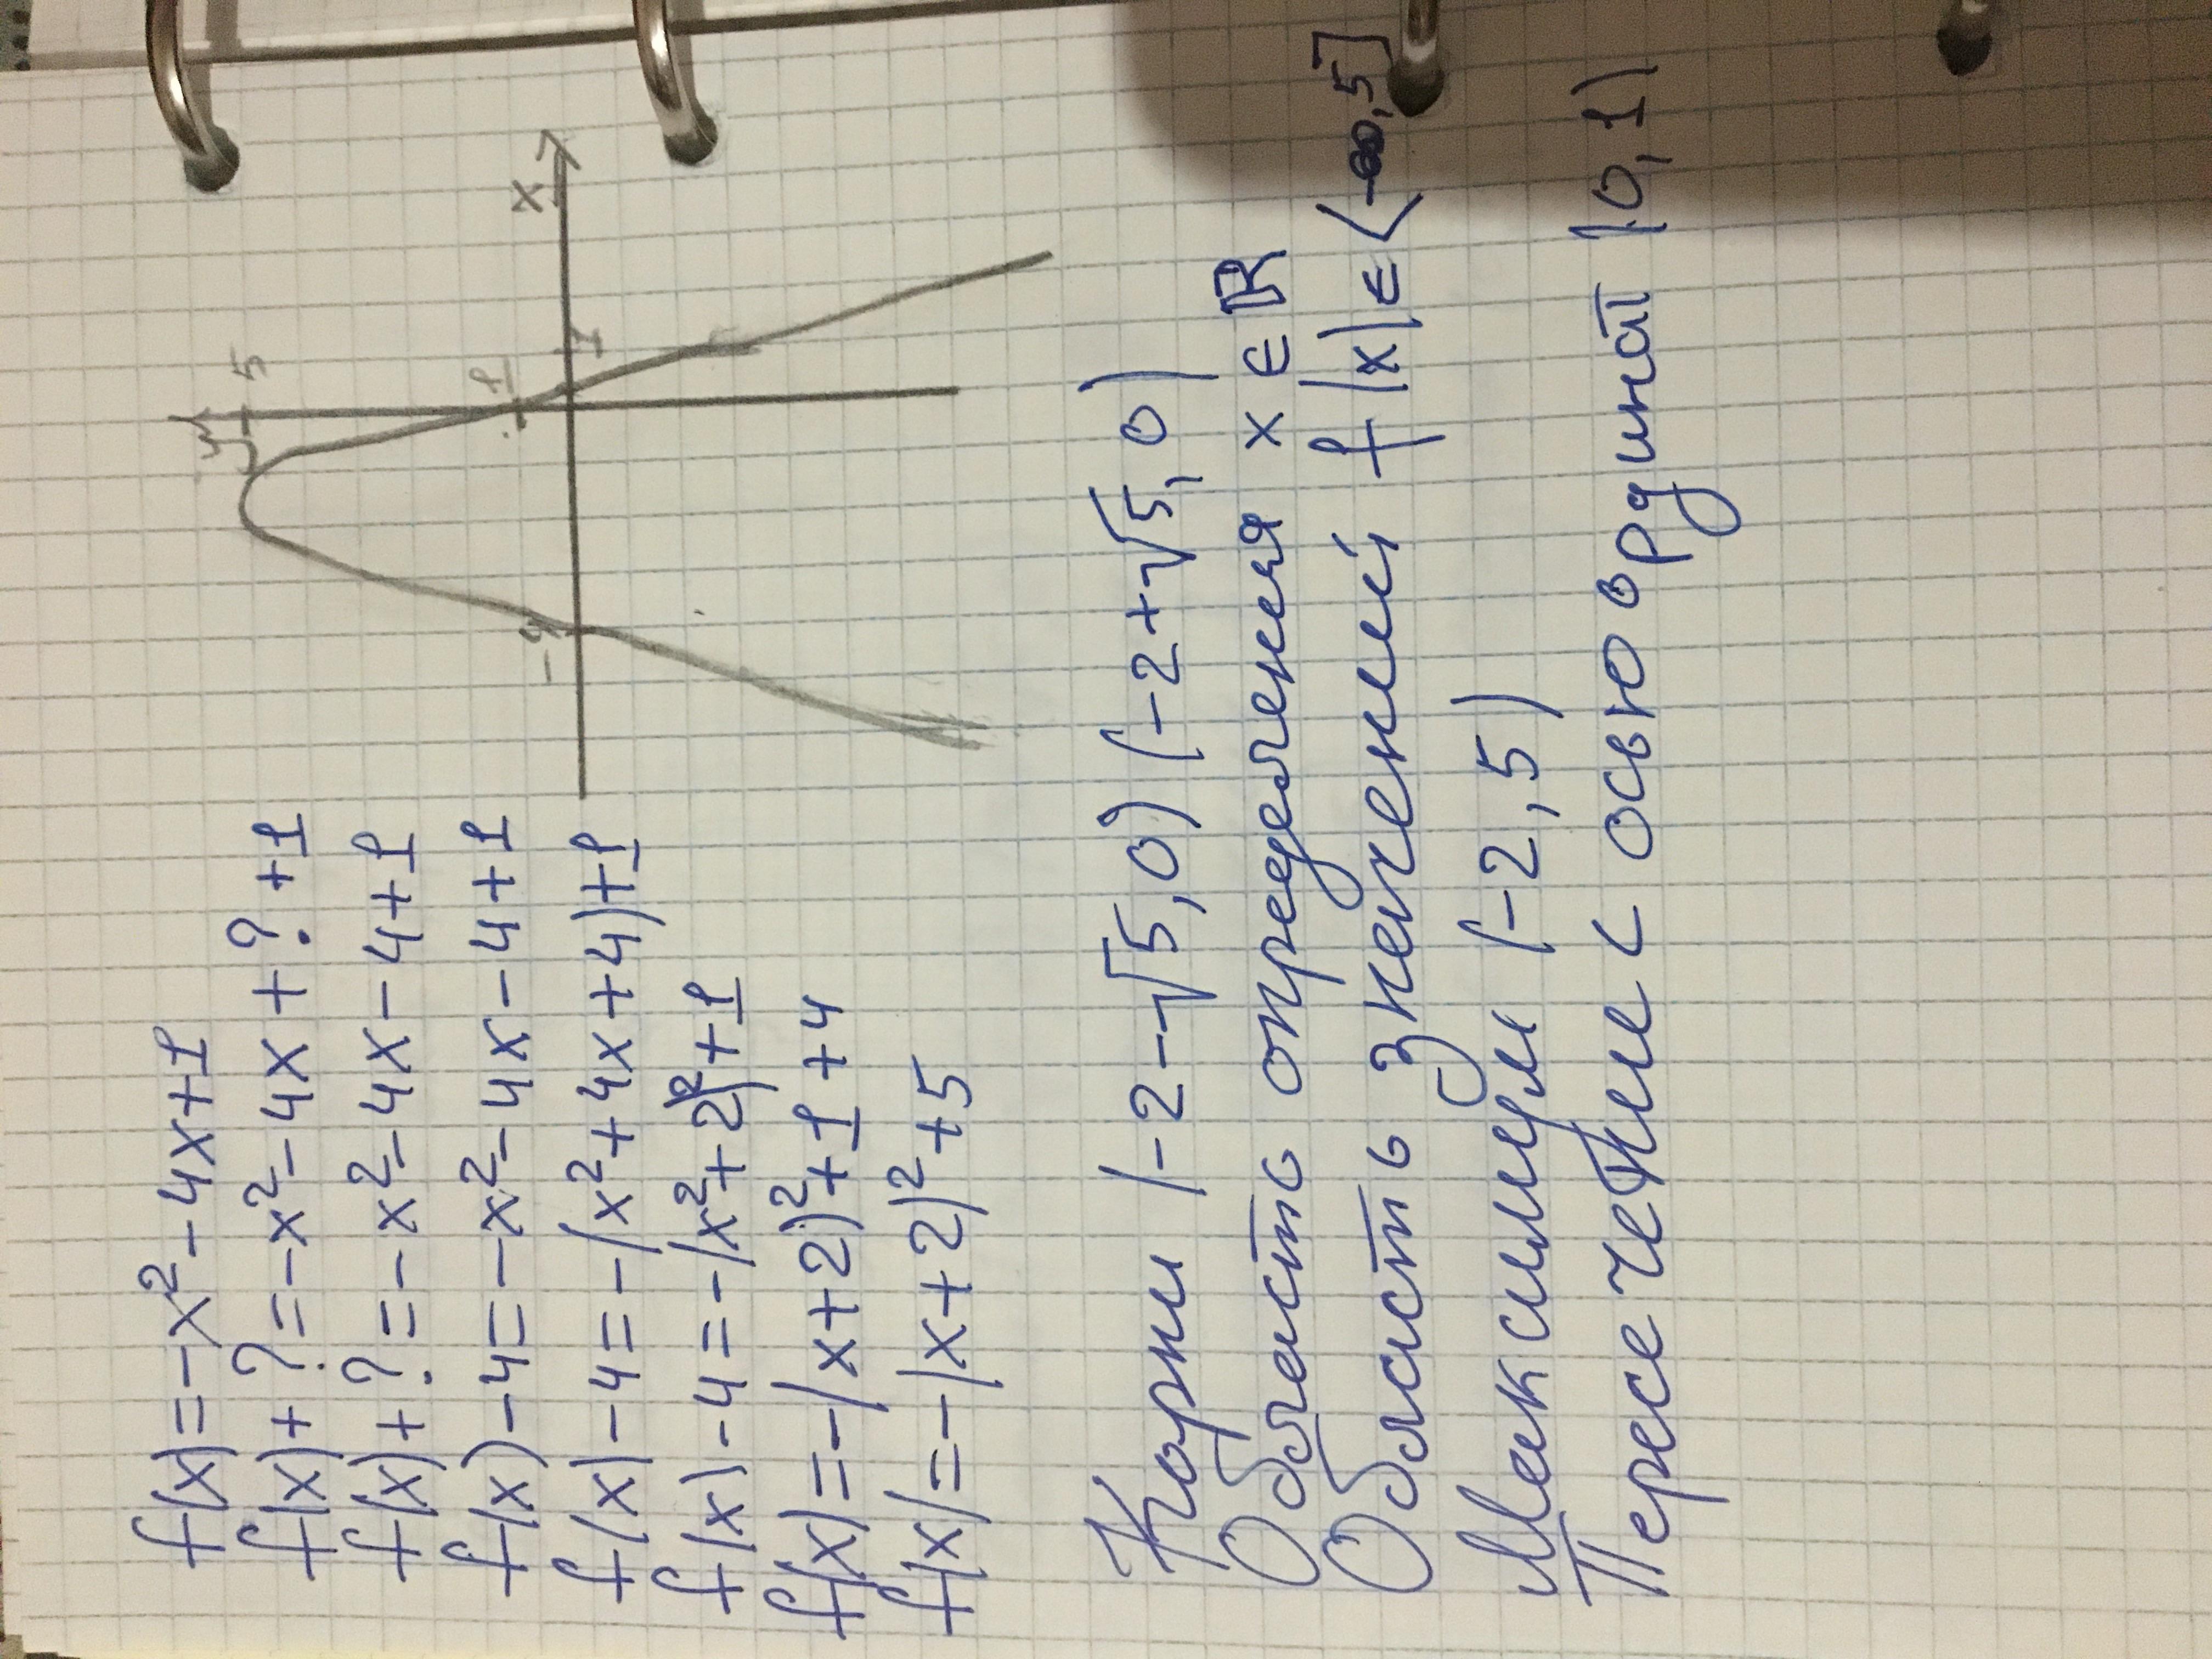 f(x)=-x²-4x+1
f(x)+?=-x²-4x+?+1
f(x)+?=-x²-4x-4+1
f(x)-4=-x²-4x-4+1
f(x)-4=-(x²+4x+4)+1
f(x)-4=-(x²+2)²+1
f(x)=-(x+2)²+1+4
f(x)=-(x+2)²+5
y
5
1
x
1
-4
Корни (-2-√5,0) (-2+√5,0)
Область определения x∈ℝ
Область значений f(x)∈(-∞,5]
Максимум (-2,5)
Пересечение с осью ординат (0,1)